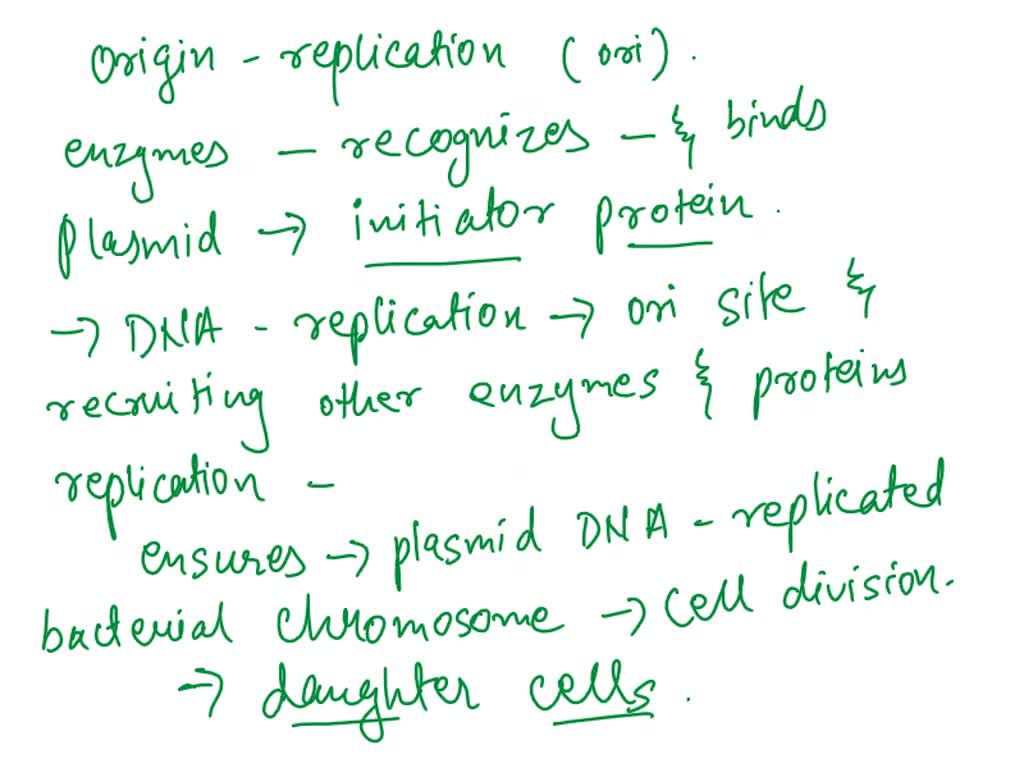 origin - replication (ori).
enzymes - recognizes - & binds
plasmid → initiator protein.
→ DNA - replication → ori site &
recruiting other enzymes & proteins
replication -
ensures → plasmid DNA - replicated
bacterial chromosome → cell division.
→ daughter cells.